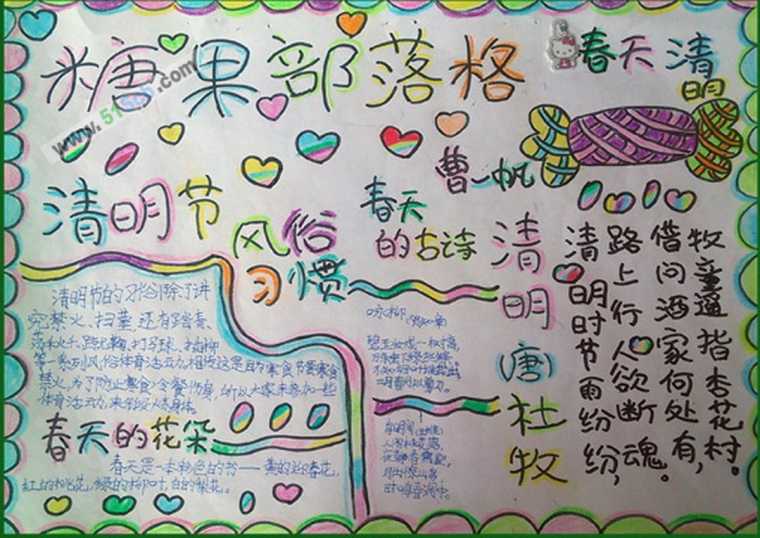 糖果部落格
春天清明
www.51
.com
曹一帆
清明节
风俗
习惯
清明节的习俗除了讲
究禁火、扫墓,还有踏青、
荡秋千、
打马球、插柳
等一系列风俗体育活动。相传这是因为寒食节要寒食
禁火,为了防止寒食冷餐伤身,所以大家来参加一些
体育活动,来锻炼身体。
春天的花朵
春天是一本彩色的书——黄的迎春花,
红的桃花,绿的柳叶,白的梨花。
春天
的古诗
咏柳
清明(唐)杜牧
清明时节雨纷纷,
路上行人欲断魂。
借问酒家何处有,
牧童遥指杏花村。